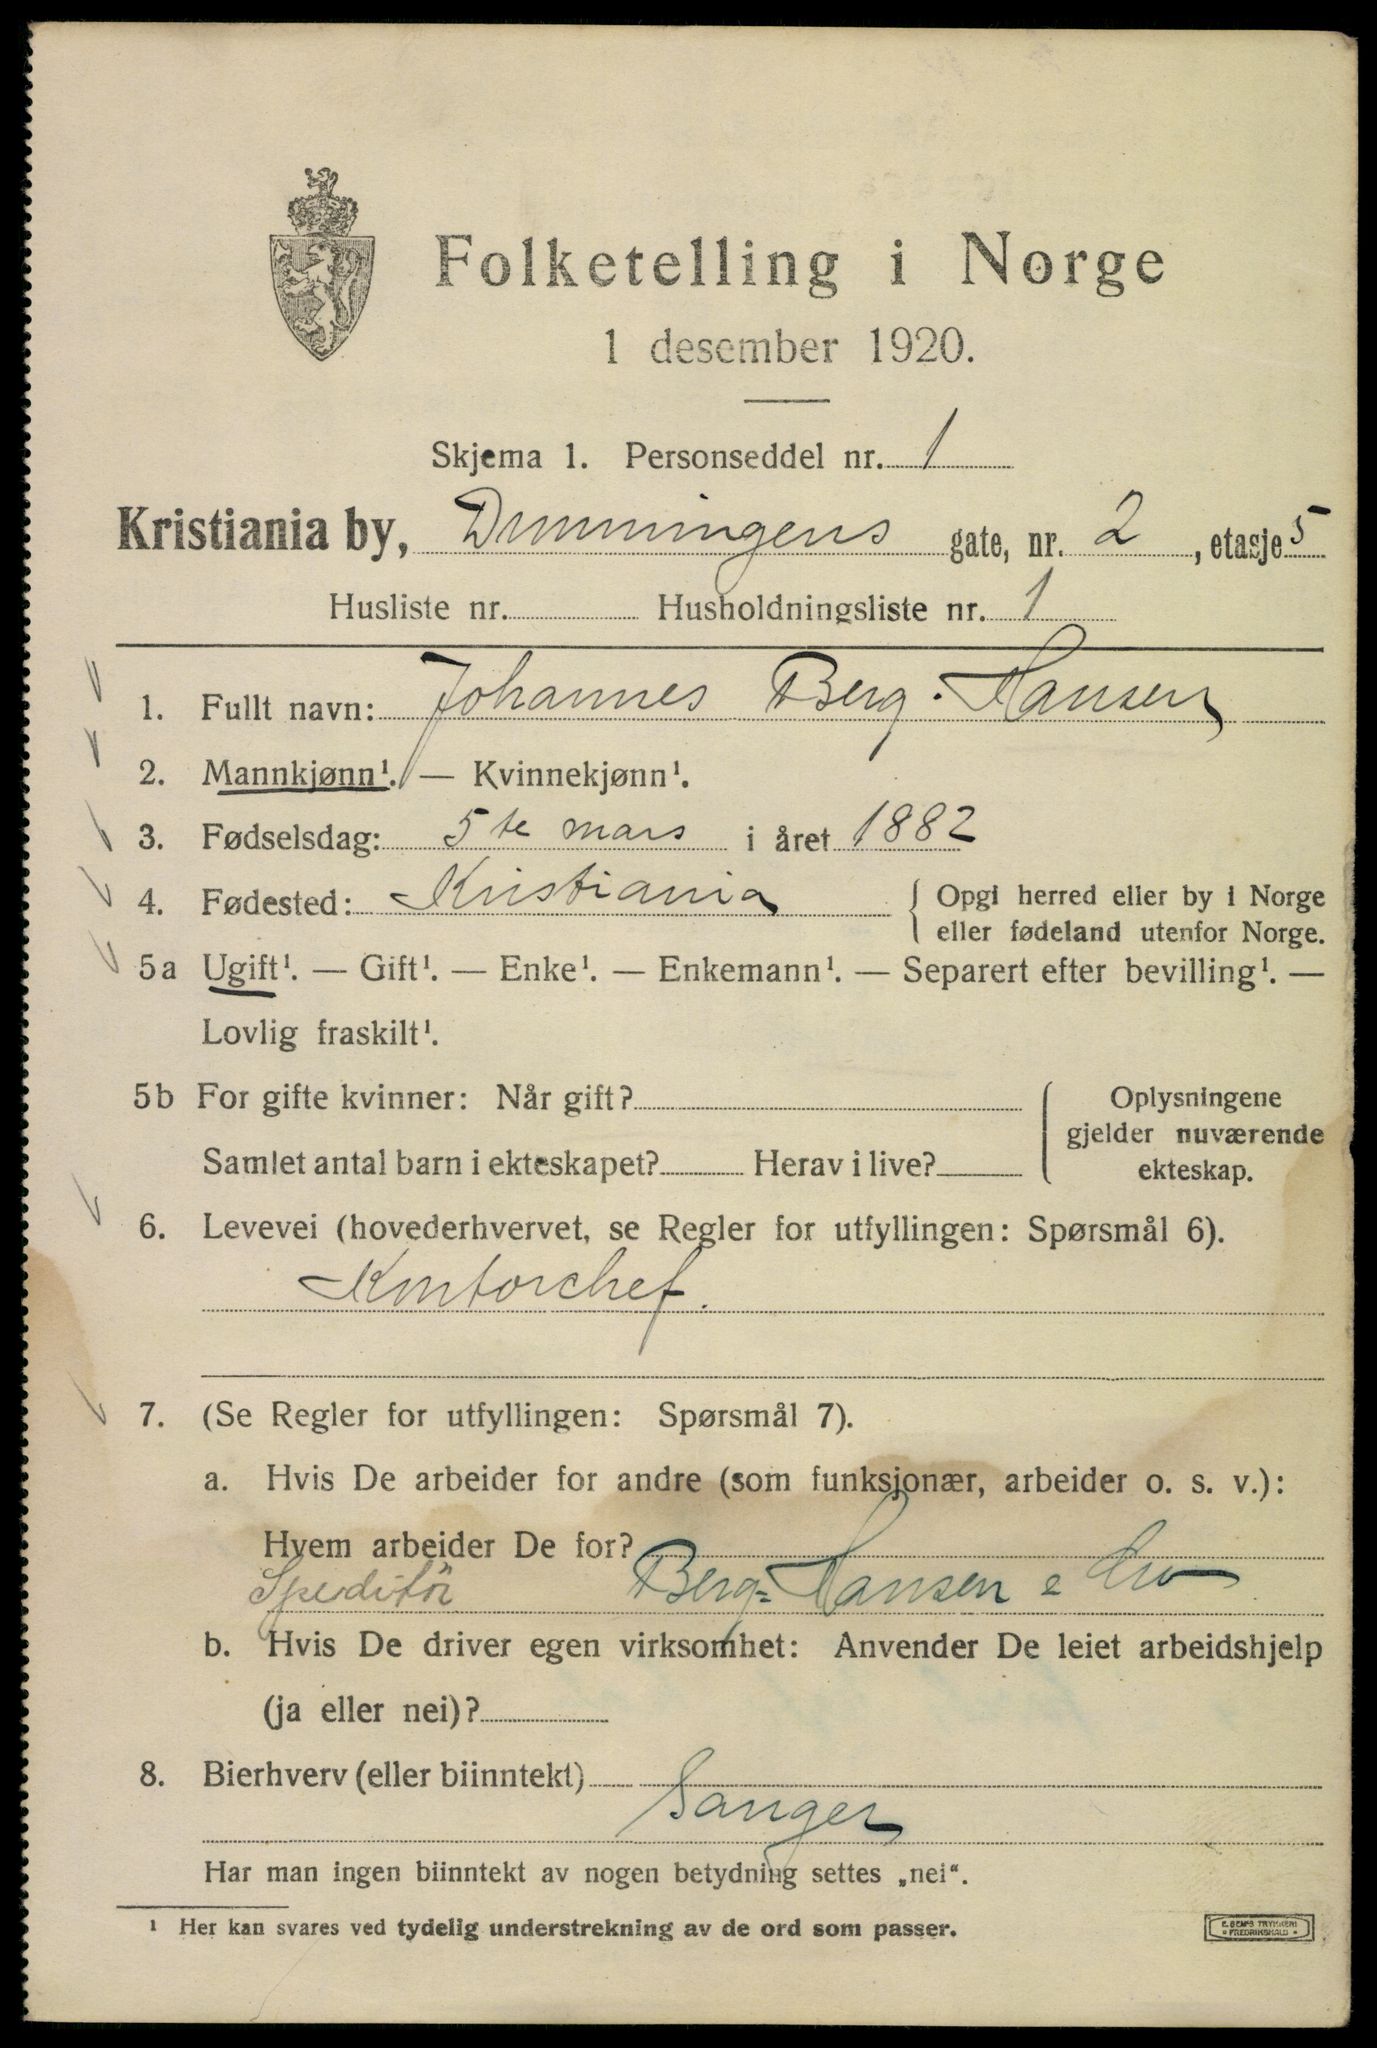 Folketelling i Norge
1 desember 1920.
Skjema 1. Personseddel nr. 1
Kristiania by, Drunningens gate, nr. 2, etasje 5
Husliste nr. Husholdningsliste nr. 1
1. Fullt navn: Johannes Berg-Hansen
2. Mannkjønn¹. — Kvinnekjønn¹.
3. Fødselsdag: 5te mars i året 1882
4. Fødested: Kristiania { Opgi herred eller by i Norge
eller fødeland utenfor Norge.
5a Ugift¹. — Gift¹. — Enke¹. — Enkemann¹. — Separert efter bevilling¹. —
Lovlig fraskilt¹.
5b For gifte kvinner: Når gift? { Oplysningene
gjelder nuværende
Samlet antal barn i ekteskapet? Herav i live? ekteskap.
6. Levevei (hovederhvervet, se Regler for utfyllingen: Spørsmål 6).
Kontorchef.
7. (Se Regler for utfyllingen: Spørsmål 7).
a. Hvis De arbeider for andre (som funksjonær, arbeider o. s. v.):
Hvem arbeider De for?
Speditör Berg=Hansen &
b. Hvis De driver egen virksomhet: Anvender De leiet arbeidshjelp
(ja eller nei)?
8. Bierhverv (eller biinntekt)
Sanger
Har man ingen biinntekt av nogen betydning settes „nei“.
¹ Her kan svares ved tydelig understrekning av de ord som passer.
E. SEM'S TRYKKERI
FREDRIKSHALD